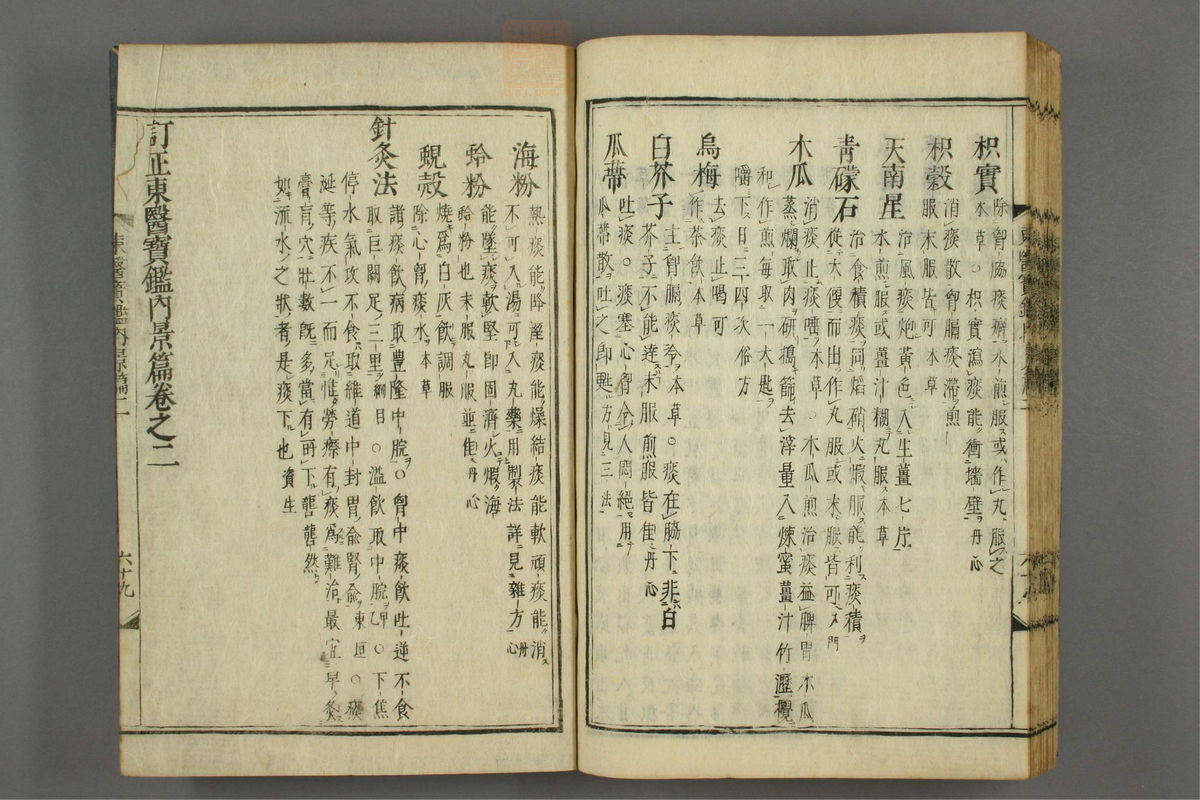 枳實 除胷脇痰癖水煎服或作丸服之
本草○枳實瀉痰能衝墻壁丹心
枳殼 消痰散胷膈痰滯煎
服末服皆可本草
天南星 治風痰炮黃色入生薑七片
水煎服或薑汁糊丸服本草
青礞石 治食積痰同焰硝火煆服能利痰積
從大便而出作丸服或末服皆可入門
木瓜 消痰止痰唾本草○木瓜煎治痰益脾胃木瓜
蒸爛取肉研搗篩去滓量入煉蜜薑汁竹瀝攪
和作煎每取一大匙
嚼下日三四次俗方
烏梅 去痰止喝可
作茶飲本草
白芥子 主胷膈痰冷本草○痰在脇下非白
芥子不能達末服煎服皆佳丹心
瓜蔕 吐痰○痰塞心胷分人悶絕用
瓜蔕散吐之卽甦方見三法
海粉 熱痰能降濕痰能燥結痰能軟頑痰能消
不可入湯可入丸藥用製法詳見雜方丹心
蛤粉 能墜痰軟堅卽固濟火煆海
蛤粉也末服丸服並佳丹心
蜆殼 燒爲白灰飮調服
除心胷痰水本草
針灸法 諸痰飮病取豐隆中脘○胷中痰飮吐逆不食
取巨闕足三里綱目○溢飮取中脘甲乙○下焦
停水氣攻不食取維道中封胃兪腎兪東垣○痰
涎等疾不一而足惟勞瘵有痰爲難治最宜早灸
膏肓穴壯數旣多當有所下礱礱然
如流水之狀者是痰下也資生
訂正東醫寶鑑內景篇卷之二
東醫寶鑑內景篇二
六十九